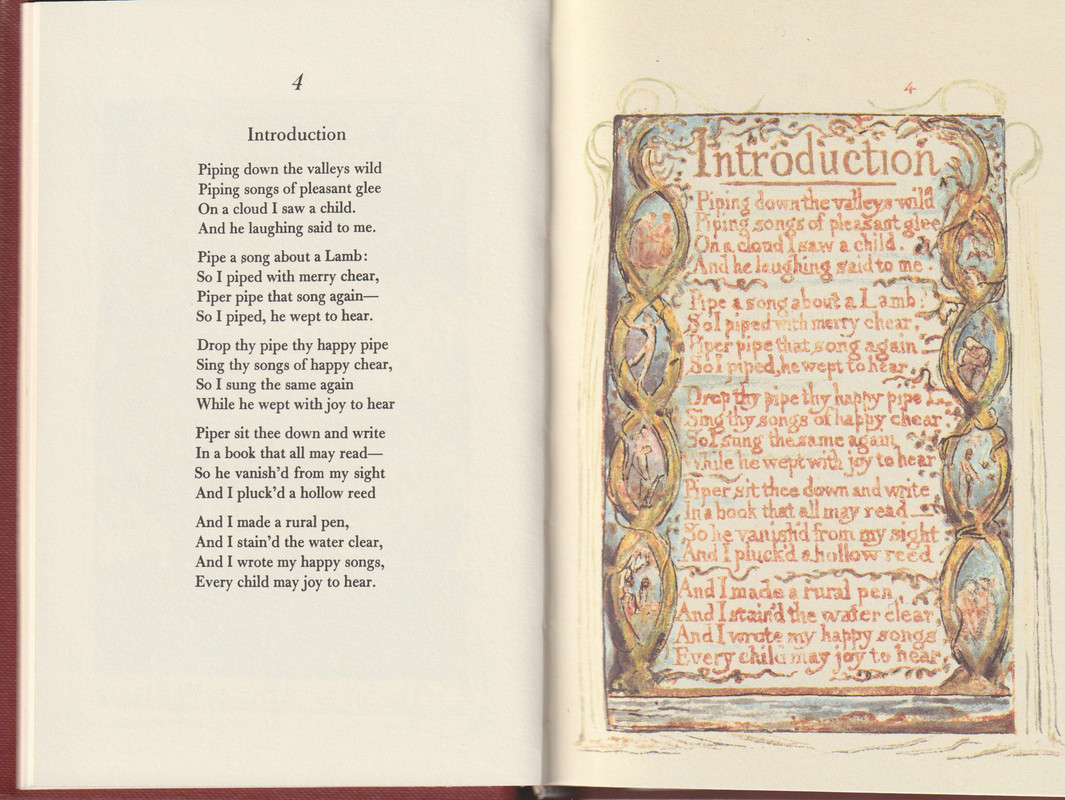 4
Introduction
Piping down the valleys wild
Piping songs of pleasant glee
On a cloud I saw a child.
And he laughing said to me.
Pipe a song about a Lamb:
So I piped with merry chear,
Piper pipe that song again—
So I piped, he wept to hear.
Drop thy pipe thy happy pipe
Sing thy songs of happy chear,
So I sung the same again
While he wept with joy to hear
Piper sit thee down and write
In a book that all may read—
So he vanish'd from my sight
And I pluck'd a hollow reed
And I made a rural pen,
And I stain'd the water clear,
And I wrote my happy songs,
Every child may joy to hear.
4
Introduction
Piping down the valleys wild
Piping songs of pleasant glee
On a cloud I saw a child.
And he laughing said to me.
Pipe a song about a Lamb:
So I piped with merry chear,
Piper pipe that song again—
So I piped, he wept to hear.
Drop thy pipe thy happy pipe
Sing thy songs of happy chear
So I sung the same again
While he wept with joy to hear
Piper sit thee down and write
In a book that all may read—
So he vanish'd from my sight
And I pluck'd a hollow reed
And I made a rural pen,
And I stain'd the water clear,
And I wrote my happy songs
Every child may joy to hear.